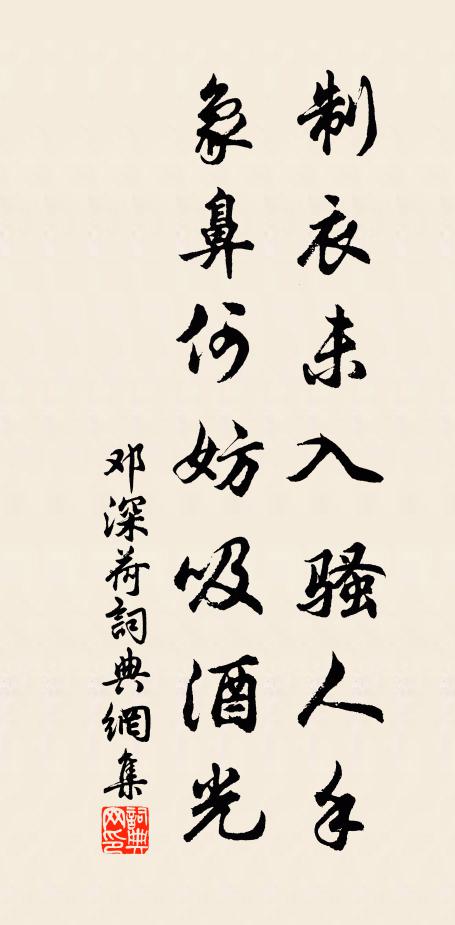 制衣未入骚人手
象鼻何妨吸酒光
邓深荷詞典網集
詞典网印